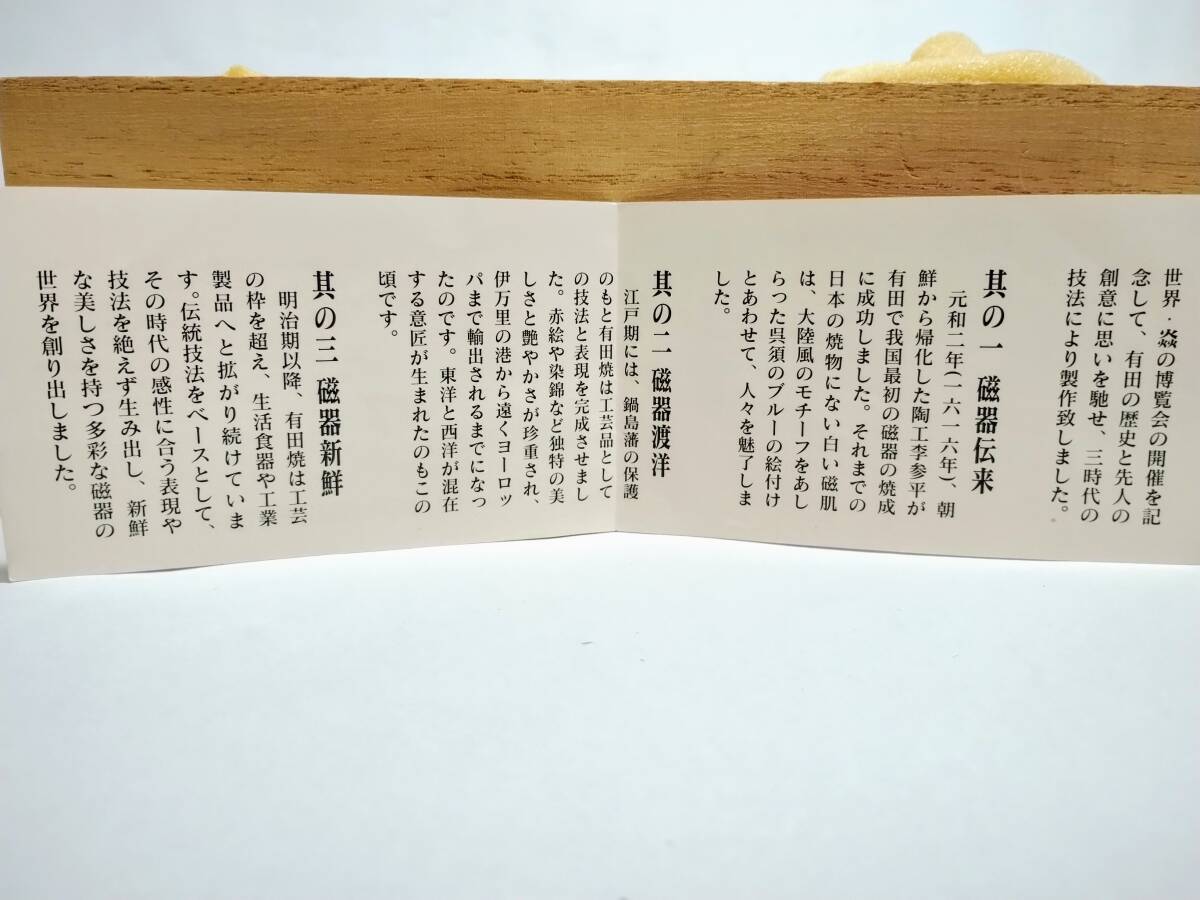 世界・焱の博覧会の開催を記
念して、有田の歴史と先人の
創意に思いを馳せ、三時代の
技法により製作致しました。
其の一 磁器伝来
元和二年(一六一六年)、朝
鮮から帰化した陶工李参平が
有田で我国最初の磁器の焼成
に成功しました。それまでの
日本の焼物にない白い磁肌
は、大陸風のモチーフをあし
らった呉須のブルーの絵付け
とあわせて、人々を魅了しま
した。
其の二 磁器渡洋
江戸期には、鍋島藩の保護
のもと有田焼は工芸品として
の技法と表現を完成させまし
た。赤絵や染錦など独特の美
しさと艶やかさが珍重され、
伊万里の港から遠くヨーロッ
パまで輸出されるまでになっ
たのです。東洋と西洋が混在
する意匠が生まれたのもこの
頃です。
其の三 磁器新鮮
明治期以降、有田焼は工芸
の枠を超え、生活食器や工業
製品へと拡がり続けていま
す。伝統技法をベースとして、
その時代の感性に合う表現や
技法を絶えず生み出し、新鮮
な美しさを持つ多彩な磁器の
世界を創り出しました。